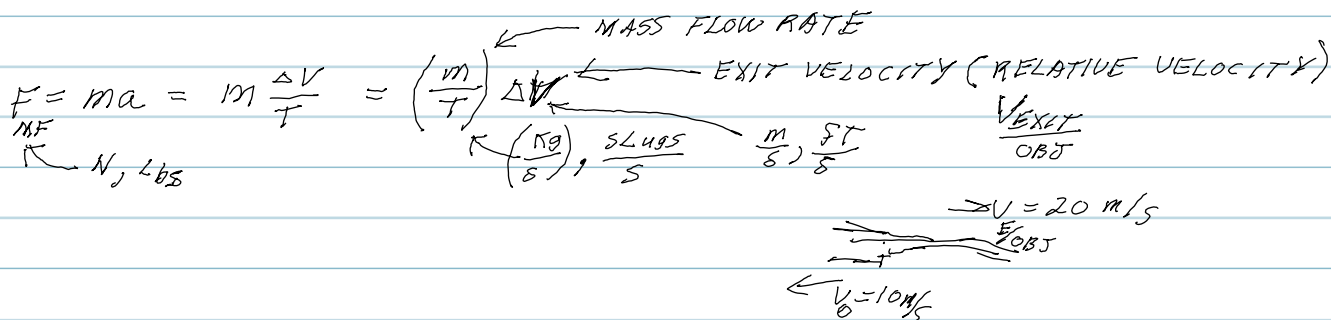 MASS FLOW RATE
F = ma = m ΔV/T = (m/T) ΔV EXIT VELOCITY (RELATIVE VELOCITY)
MF
N, Lbs (Kg/s), SLugs/S m/s, fT/s V EXIT/OBJ
→V = 20 m/s
E/OBJ
V0 = 10 m/s